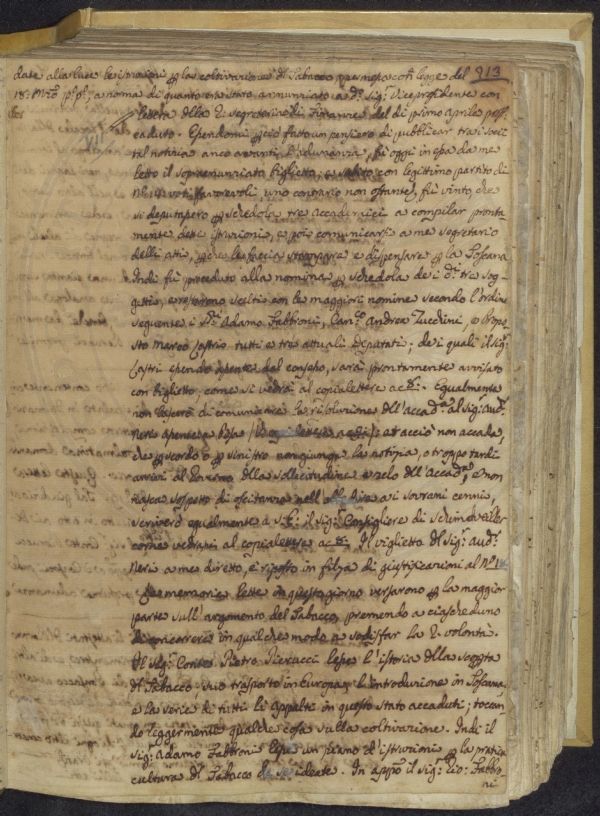 date alla luce le istruzioni p la coltivazione dl Tabacco permessa con legge del 213
18: Mzo pp: a norma di quanto era stato annunziato a dº. Sig: Vicepresidente con
lettera dlla R. Segreteria di Finanze del dì primo Aprile pass
caduto. Essendomi p ciò fatto un pensiero di pubblicar tra i Soci
tal notizia anco avanti l'adunanza, fu oggi in essa da me
letto il sopranunziato biglietto; e subito con legittimo partito di
Nº: 14 voti favorevoli, uno contrario non ostante, fu vinto, che
si deputassero p schedola tre Accademici a compilar pronta-
mente dette istruzioni, e poi comunicarsi a me Segretario
delli atti, perche le faccia stampare e dispensare p la Toscana
Indi fu proceduto alla nomina p schedola de i dº: tre sog-
getti, e restorono scelti con le maggiori nomine secondo l'ordine
seguente i SS: Adamo Fabbroni, Canco. Andrea Zucchini, e Propo-
sto Marco Lastri tutti e tre attuali Deputati; de i quali il Sig:
Lastri essendo assente dal consesso, sarà prontamente avvisato
con biglietto, come si vedrà al copialettere ac. Egualmente
non lascerò di comunicare la risoluzione dll' Accad: al Sig: Aud:
Neri assente a Pisa et acciò non accada,
che p scordo o p sinistro non giunga la notizia, o troppo tardi
arrivi al Trono dlla sollecitudine e zelo dll' Accad:, e non
nasca sospetto di oscitanza nell ubbidire a i sovrani cenni,
scriverò egualmente a S.E: il Sig: Consigliere di Schmidveiller
come vedrassi al copialettere ac. Il viglietto dl Sig: Aud:
Neri a me diretto, è riposto in filza di giustificazioni al Nº 1
Le memorie lette in questo giorno versarono p la maggior
parte sull' argomento del Tabacco, premendo a ciascheduno
di concorrere in qualche modo a sodisfar la R. volontà.
Il Sig: Conte Pietro Pierucci lesse l'istoria dlla scoperta
dl Tabacco, suo trasporto in Europa, l'introduzione in Toscana,
e la serie di tutti li Appalti in questo Stato accaduti; toccan
do leggermente qualche cosa sulla coltivazione. Indi il
Sig: Adamo Fabbroni lesse un piano d'istruzioni p la pratica
cultura dl Tabacco da se ideate. In appº il Sig: Gio: Fabbro-
ni